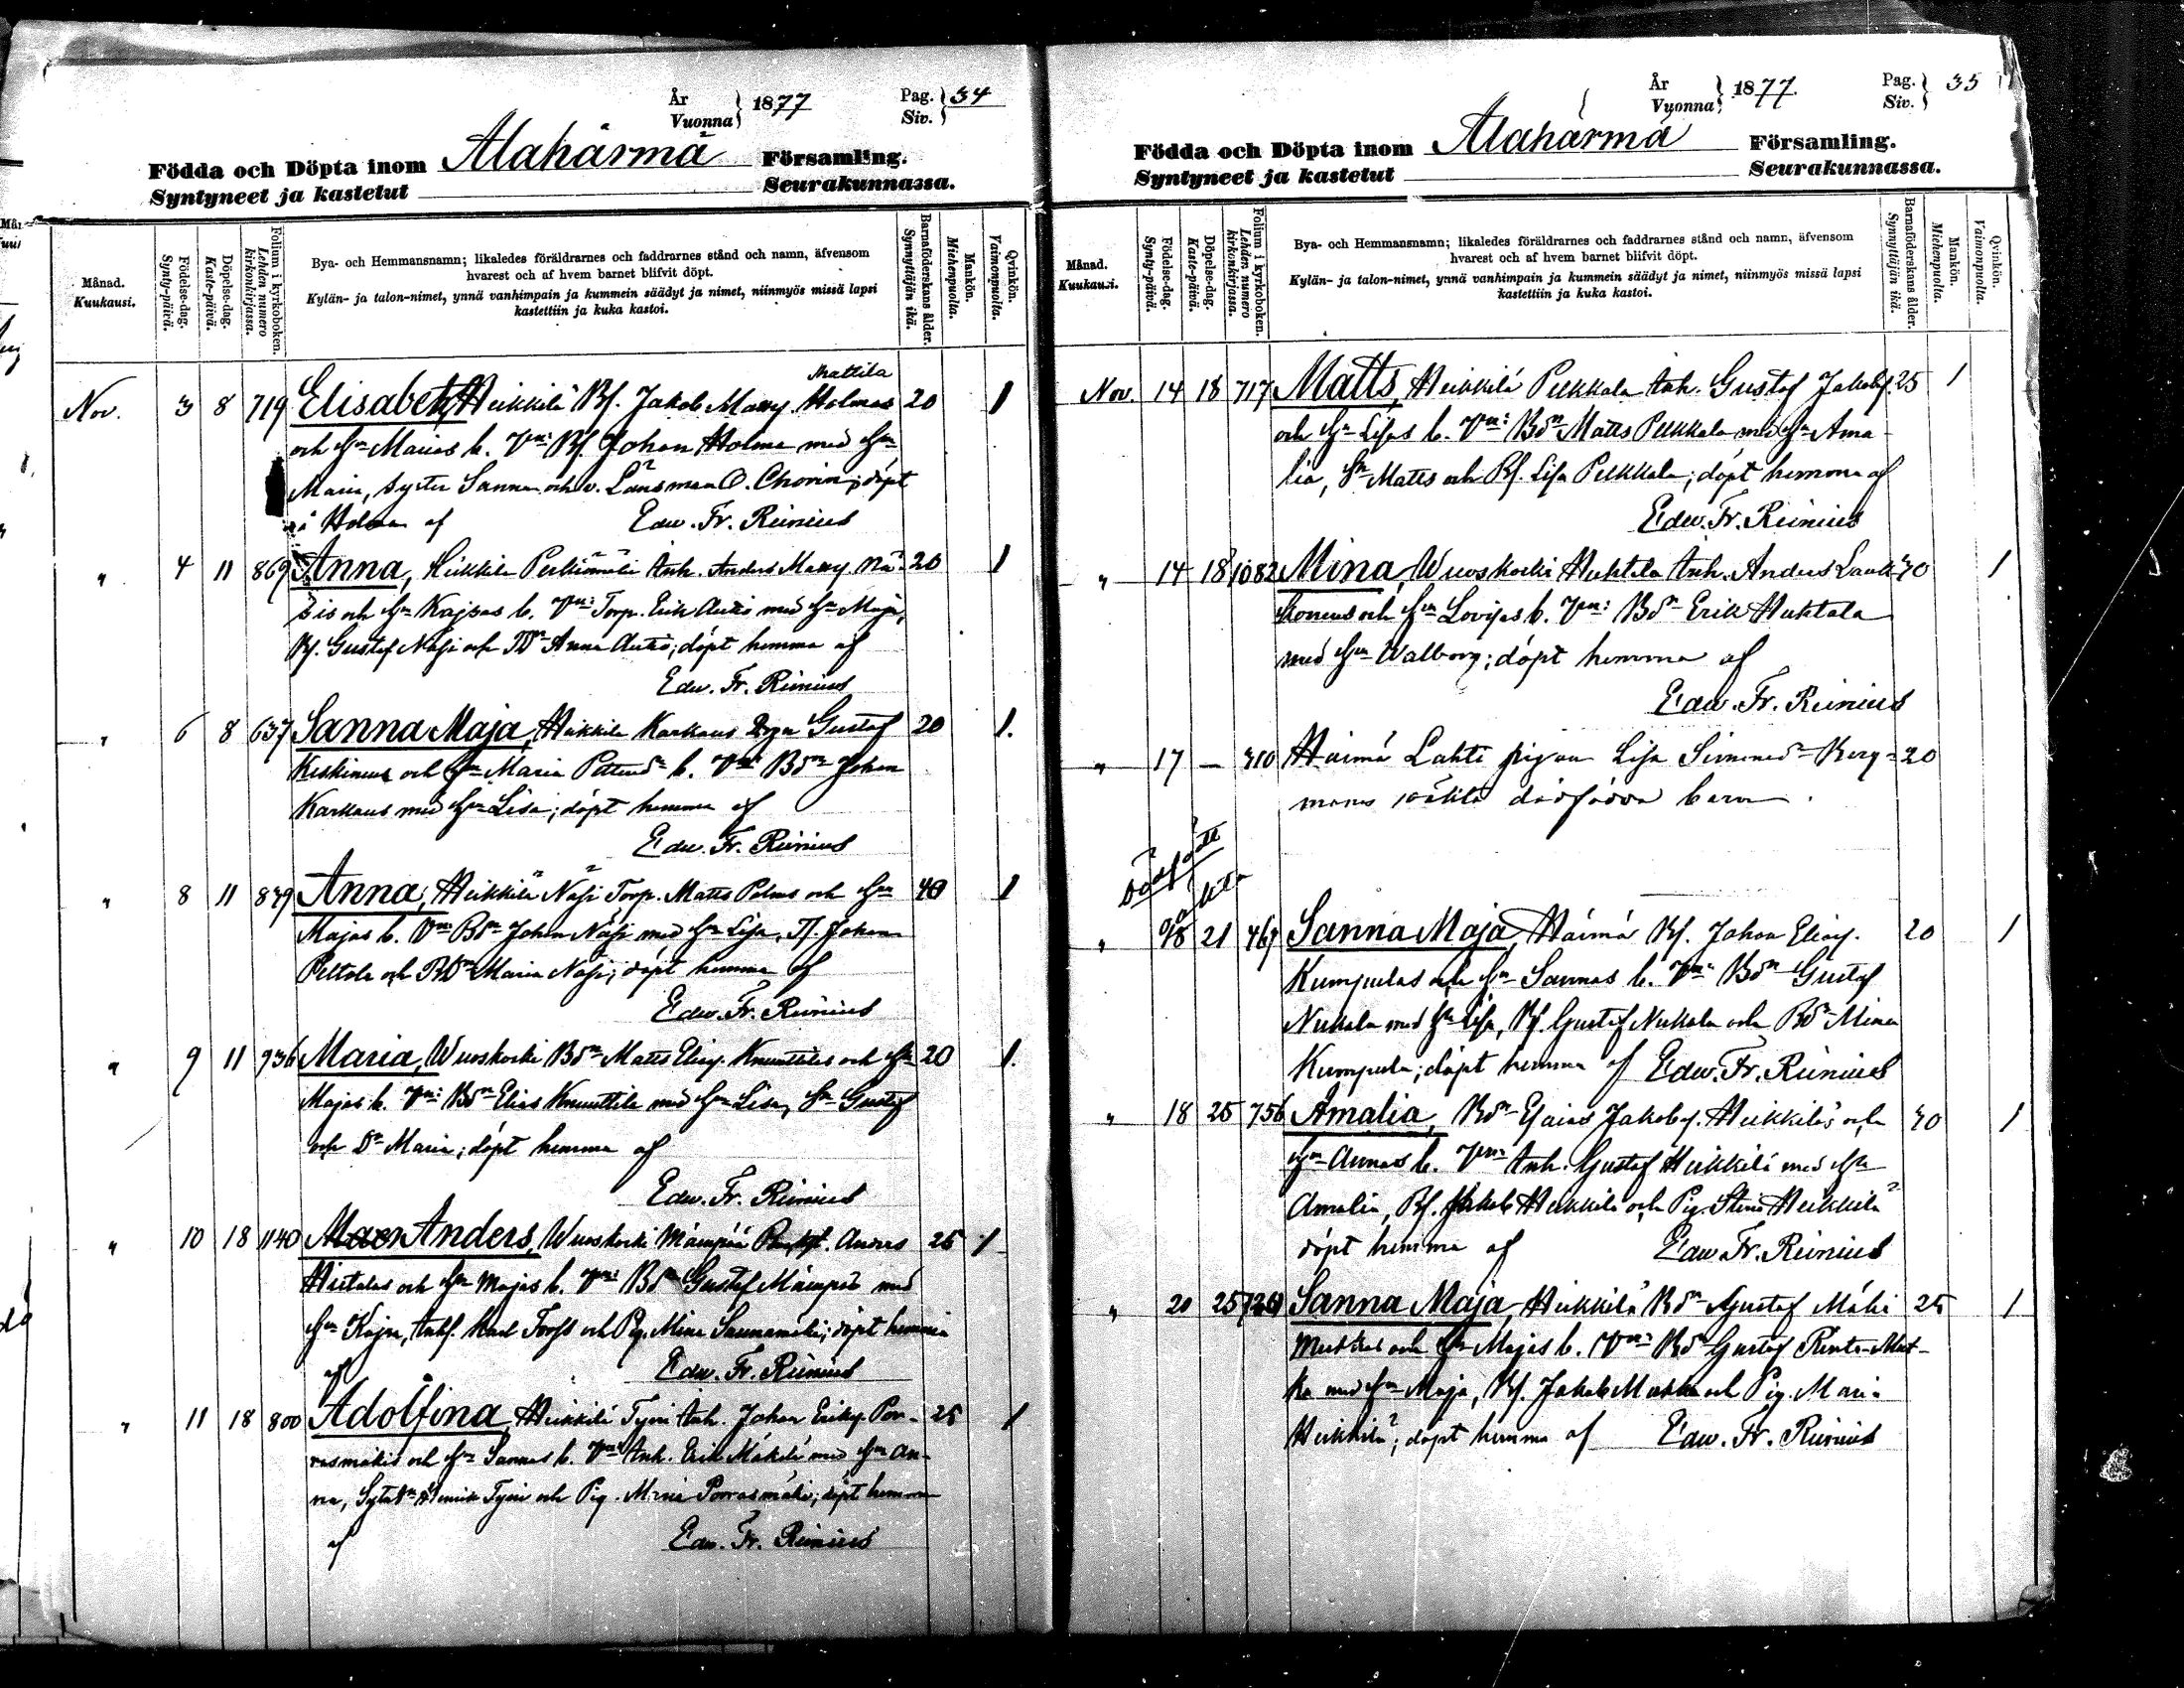 År
Vuonna } 1877 Pag.
Siv. } 34
Födda och Döpta inom Alahärmä Församling.
Syntyneet ja kastetut Seurakunnassa.
Månad.
Kuukausi.
Födelse-dag.
Synty-päivä.
Döpelse-dag.
Kaste-päivä.
Folium i kyrkoboken.
Lehden numero kirkonkirjassa.
Bya- och Hemmansnamn; likaledes föräldrarnes och faddrarnes stånd och namn, äfvensom
hvarest och af hvem barnet blifvit döpt.
Kylän- ja talon-nimet, ynnä vanhimpain ja kummein säädyt ja nimet, niinmyös missä lapsi
kastettiin ja kuka kastoi.
Barnaföderskans ålder.
Synnyttäjän ikä.
Mankön.
Miehenpuolia.
Qvinkön.
Vaimonpuolia.
Mattila
Nov. 3 8 719 Elisabeth, Heikkilä Bf. Jakob Mattsy. Holmas 20 1
och Hn Marias b. Vn: Bf. Johan Holma med Hn
Maria, syster Sanna och v. Länsman O. Chorin; döpt
i Holma af Edw. Fr. Reinius
" 4 11 869 Anna, Heikkilä Inh. Anders Mattsy. Nä- 20 1
sis och Hn Kajsas b. Vn: Torp. Erik Autio med Hn Maja,
Bf. Gustaf Näsi och Anna Autio; döpt hemma af
Edw. Fr. Reinius
" 6 8 637 Sanna Maja, Heikkilä Karhaus Gustaf 20 1.
och Hn Maria b. Vn: Bdn Johan
Karhaus med Hn Lisa; döpt hemma af
Edw. Fr. Reinius
" 8 11 839 Anna, Heikkilä Näsi Torp. Matts och Hn 40 1
Majas b. Vn Bdn Johan Näsi med Hn Lisa, Johan
Peltola och Maria Näsi; döpt hemma af
Edw. Fr. Reinius
" 9 11 936 Maria, Wuoskoski Bdn Matts Eliasy. Knuuttilas och Hn 20 1.
Majas b. Vn: Bdn Elias Knuuttila med Hn Lisa, Sn Gustaf
och Dn Maria; döpt hemma af
Edw. Fr. Reinius
" 10 18 1140 Anders, Wuoskoski Mäenpää Anders 25 1
Hietalas och Hn Majas b. Vn: Bdn Gustaf Mäenpää med
Hn Kajsa, Karl Forss och Pig. Mina Saunamäki; döpt hemma
af Edw. Fr. Reinius
" 11 18 800 Adolfina, Heikkilä Tyni Inh. Johan Eriksy. Por- 25 1
rasmäkis och Hn Sannas b. Vn: Inh. Erik Mäkelä med Hn An-
na, Henrik Tyni och Pig. Mina Porrasmäki; döpt hemma
af Edw. Fr. Reinius
År
Vuonna } 1877. Pag.
Siv. } 35
Födda och Döpta inom Alahärmä Församling.
Syntyneet ja kastetut Seurakunnassa.
Månad.
Kuukausi.
Födelse-dag.
Synty-päivä.
Döpelse-dag.
Kaste-päivä.
Folium i kyrkoboken.
Lehden numero kirkonkirjassa.
Bya- och Hemmansnamn; likaledes föräldrarnes och faddrarnes stånd och namn, äfvensom
hvarest och af hvem barnet blifvit döpt.
Kylän- ja talon-nimet, ynnä vanhimpain ja kummein säädyt ja nimet, niinmyös missä lapsi
kastettiin ja kuka kastoi.
Barnaföderskans ålder.
Synnyttäjän ikä.
Mankön.
Miehenpuolia.
Qvinkön.
Vaimonpuolia.
Nov. 14 18 717 Matts, Heikkilä Pekkala Inh. Gustaf Jakobsy. 25 1
och Hn Lisas b. Vn: Bdn Matts Pekkala med Hn Ama-
lia, Sn Matts och Bf. Lisa Pekkala; döpt hemma af
Edw. Fr. Reinius
" 14 18 1082 Mina, Wuoskoski Huhtala Inh. Anders Lauk- 30 1
konens och Hn Lovisas b. Vn: Bdn Erik Huhtala
med Hn Walborg; döpt hemma af
Edw. Fr. Reinius
" 17 — 310 Härmä Lahti pigan Lisa Simonsdr Berg- 20
mans oäkta dödfödda barn.
dödfödt
oäkta
" 18 21 467 Sanna Maja, Härmä Bf. Johan Eliasy. 20 1
Kumpulas och Hn Sannas b. Vn: Bdn Gustaf
Nukala med Hn Lisa, Bf. Gustaf Nukala och Bdn Mina
Kumpula; döpt hemma af Edw. Fr. Reinius
" 18 25 756 Amalia, Bdn Esaias Jakobsy. Heikkiläs och 30 1
Hn Annas b. Vn: Inh. Gustaf Heikkilä med Hn
Amalia, Bf. Jakob Heikkilä och Pig. Stina Heikkilä
döpt hemma af Edw. Fr. Reinius
" 20 25 Sanna Maja, Heikkilä Bdn Gustaf Mäki 25 1
Mutkas och Hn Majas b. Vn: Bdn Gustaf Rinta-Mut-
ka med Hn Maja, Bf. Jakob Mutka och Pig. Maria
Heikkilä; döpt hemma af Edw. Fr. Reinius